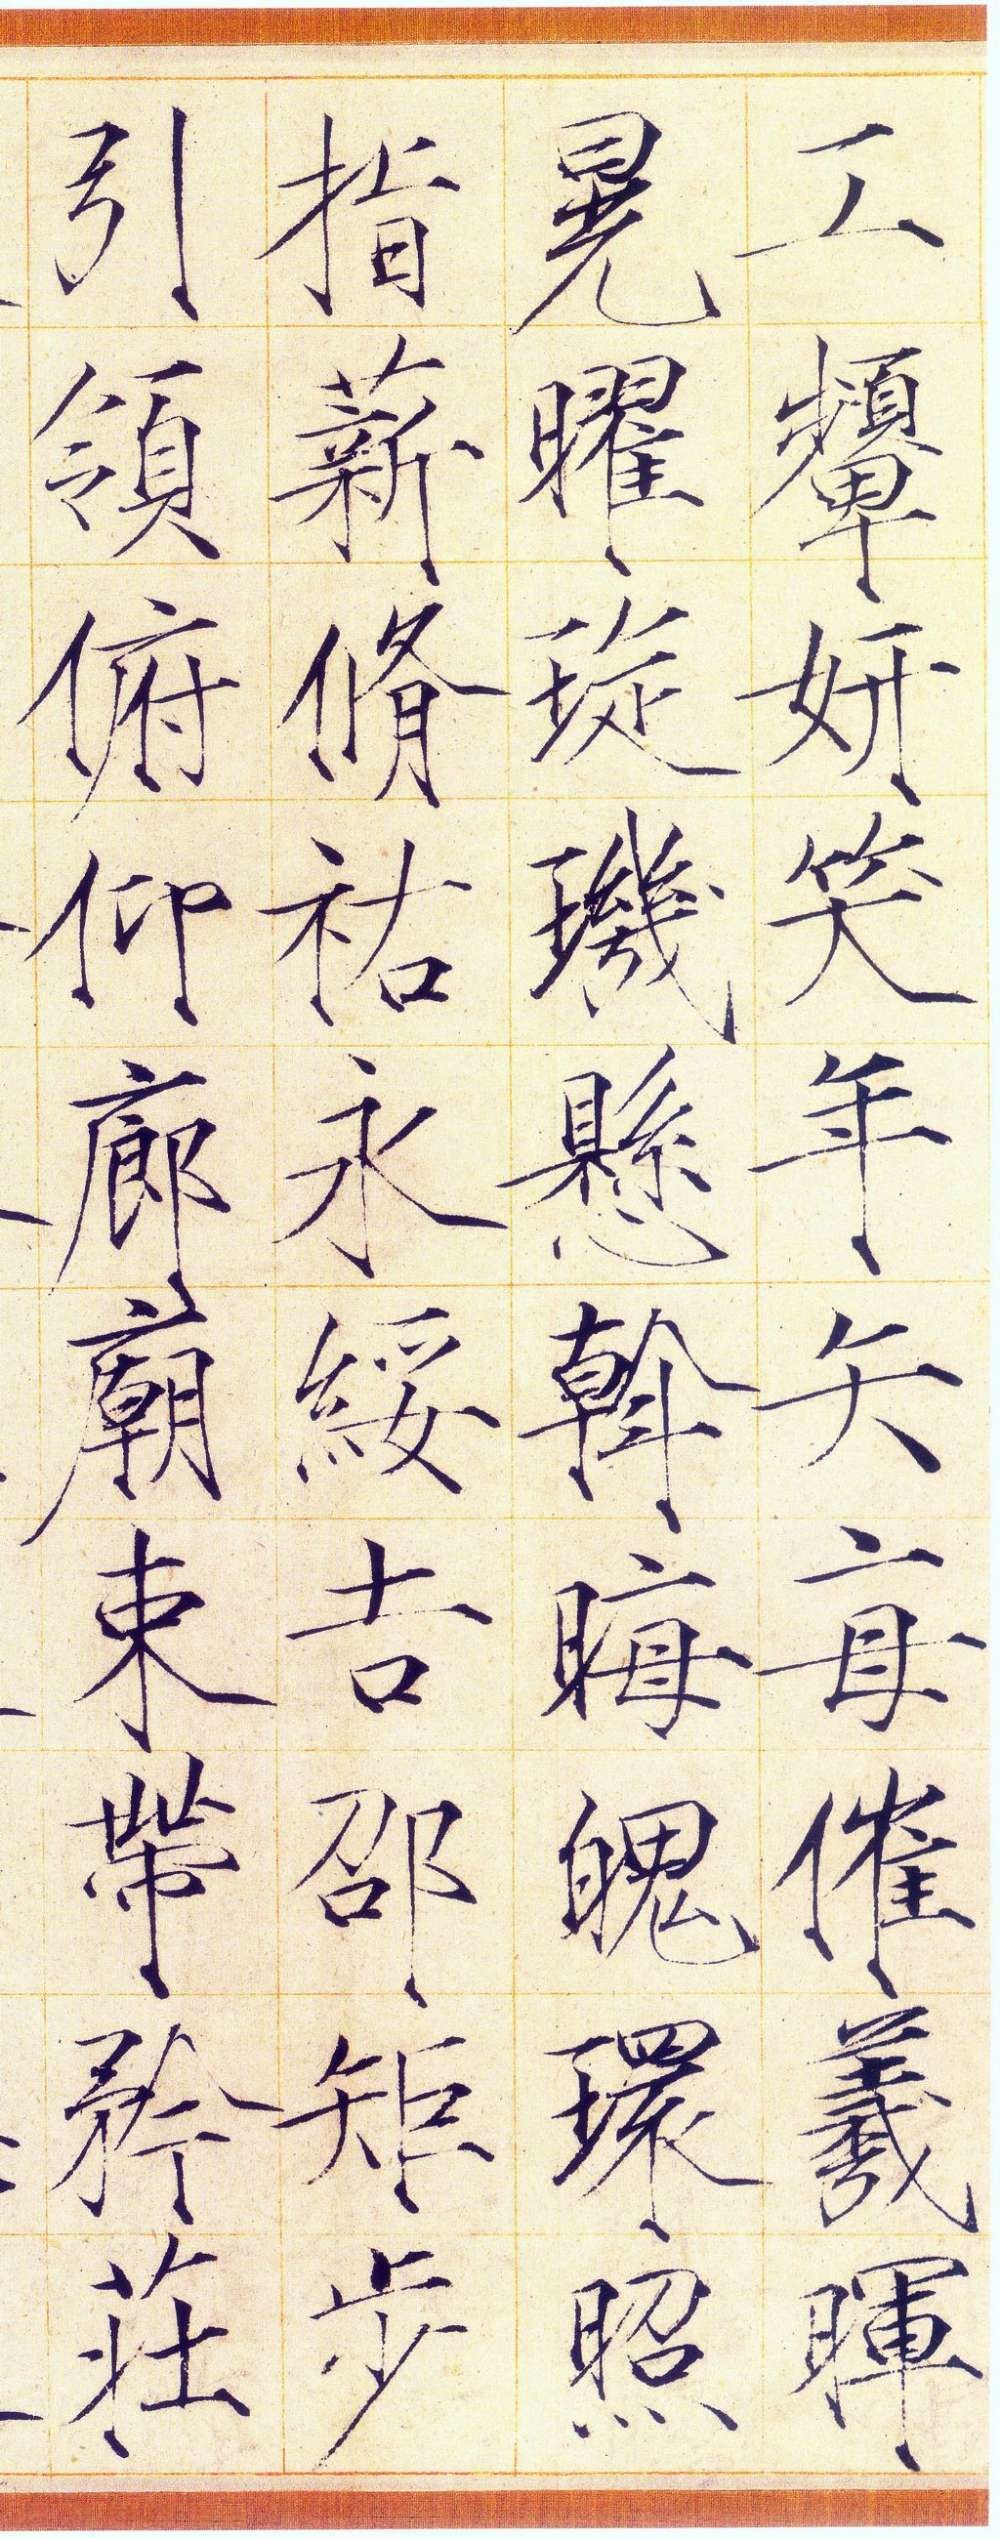 工顰妍笑年矢每催羲暉
晃曜琁璣懸斡晦魄環照
指薪脩祜永綏吉邵矩步
引領俯仰廊廟束帶矜莊